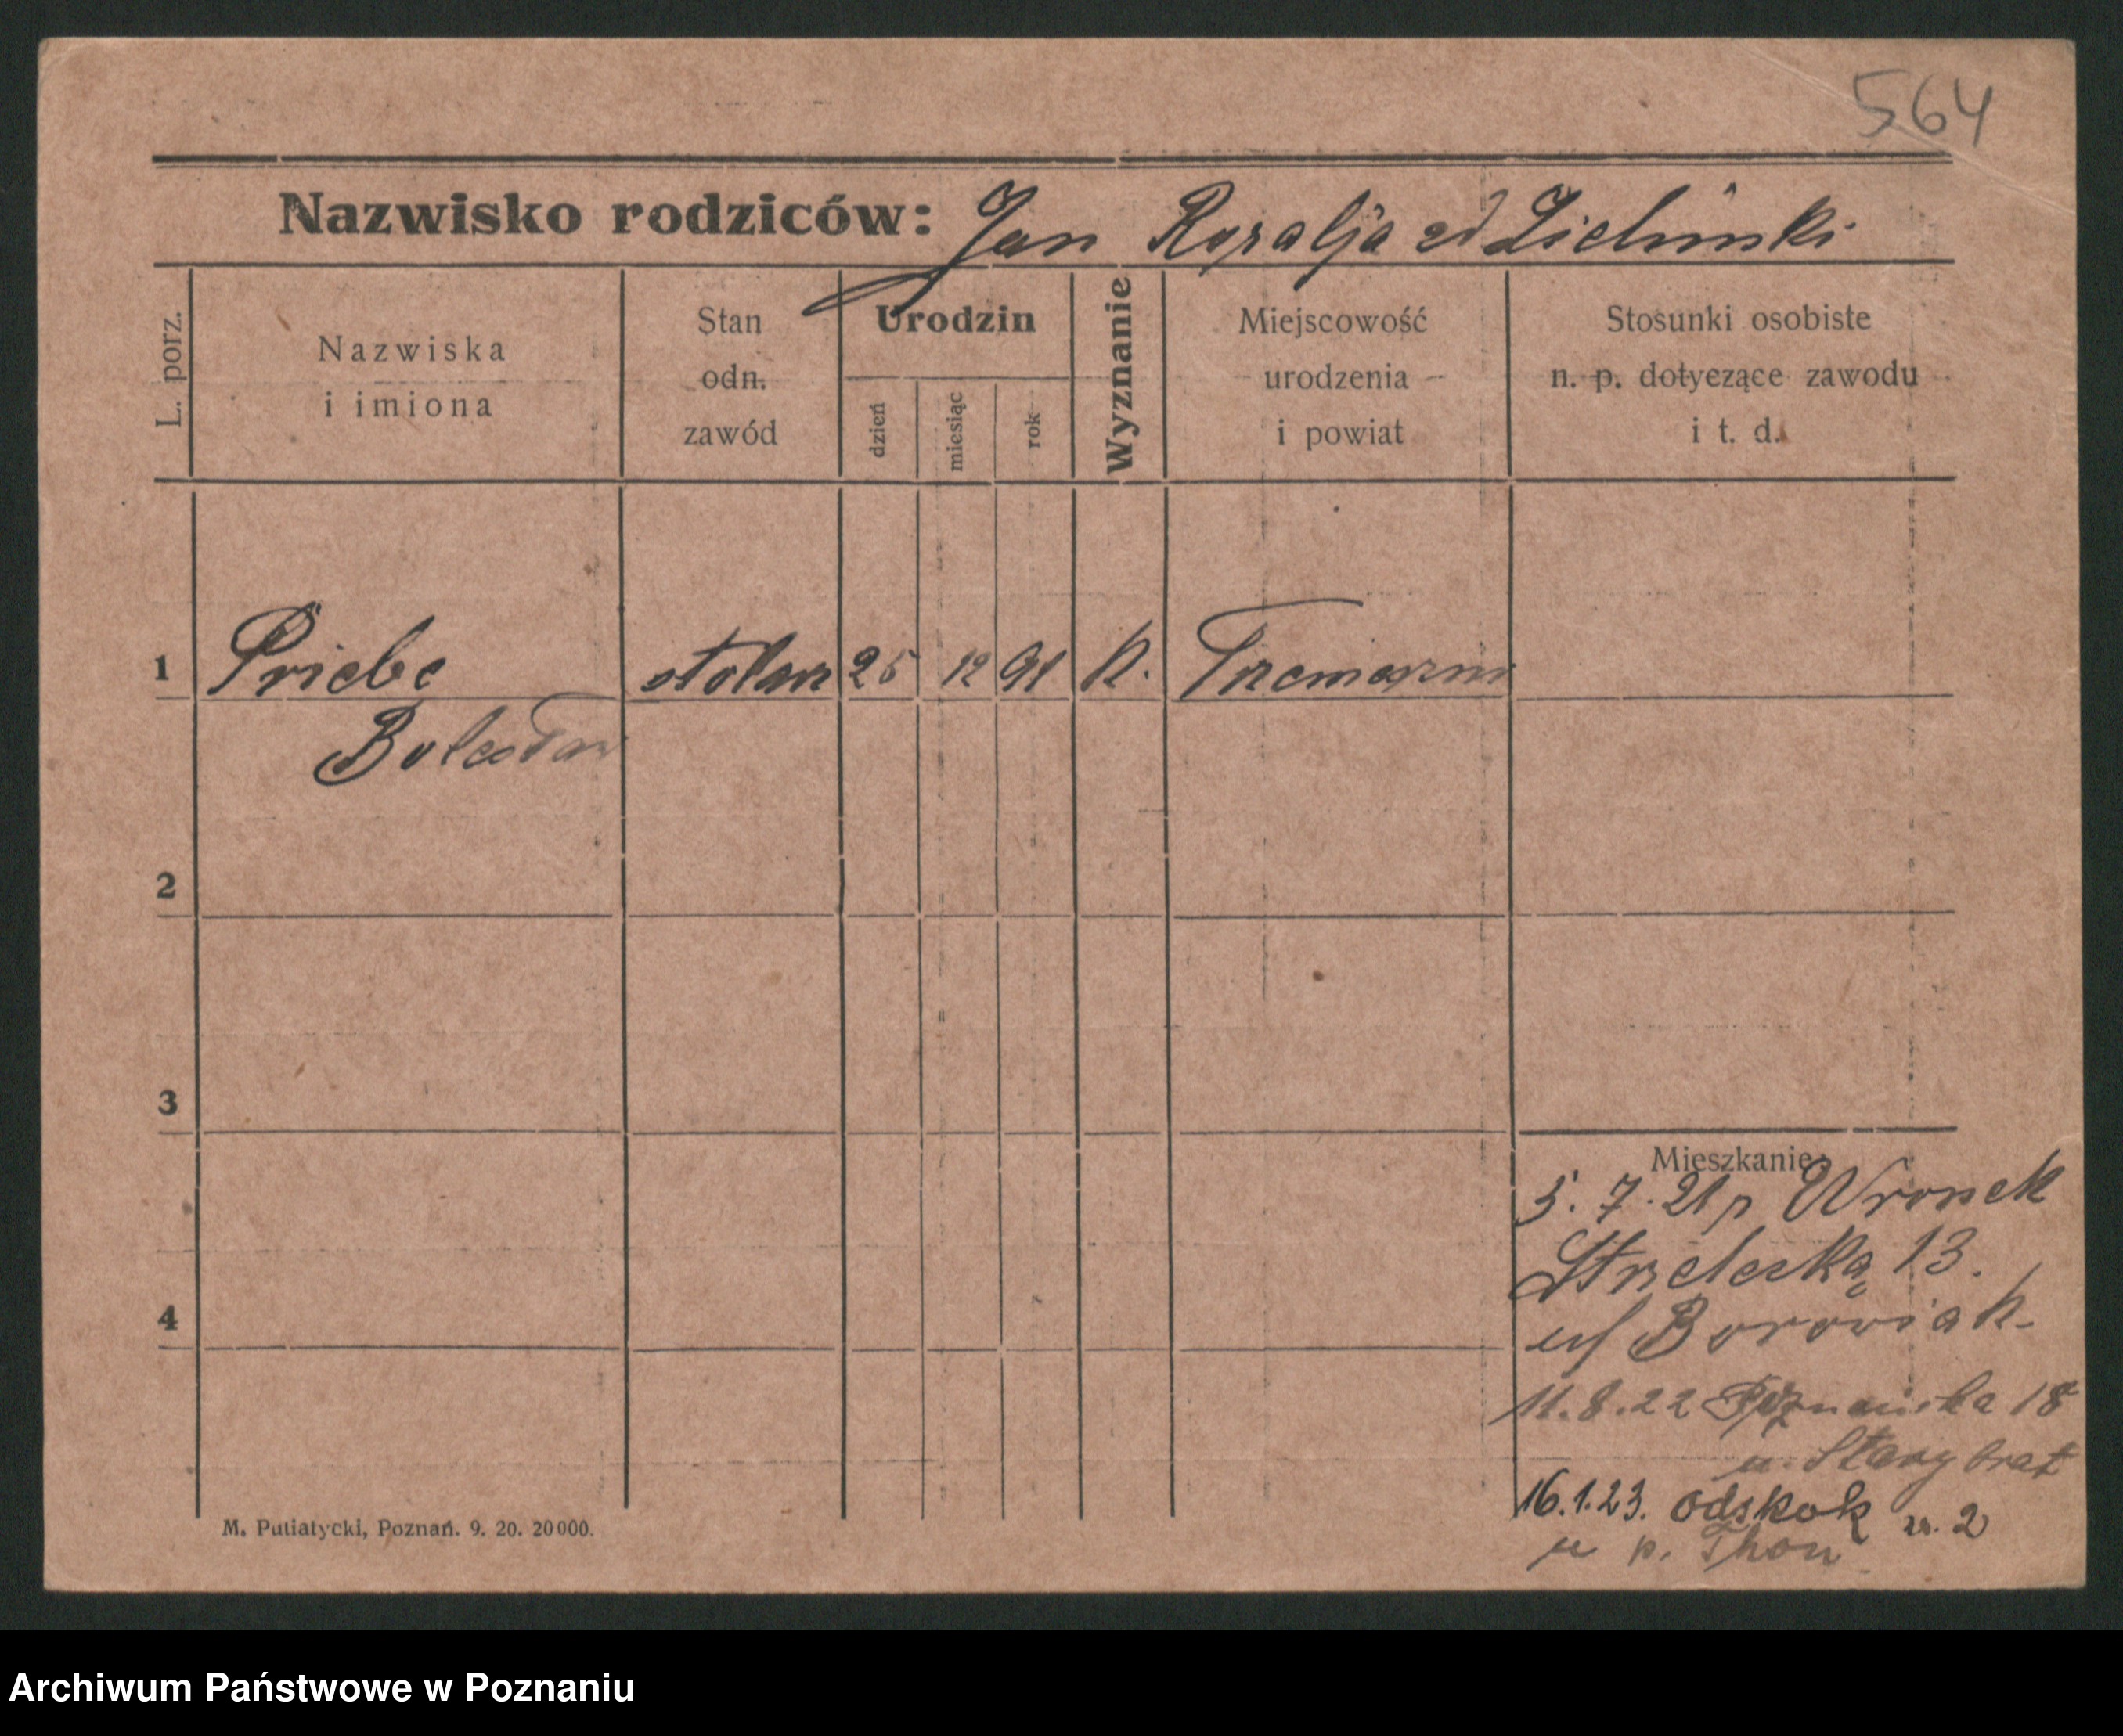 564
Nazwisko rodziców: Jan Rozalja zd Zielinski
L. porz.
Nazwiska
i imiona
Stan
odn.
zawód
Urodzin
dzień
miesiąc
rok
Wyznanie
Miejscowość
urodzenia
i powiat
Stosunki osobiste
n. p. dotyezące zawodu
i t. d.
1 Priebe stolarz 25 12 91 k.
Bolesław
2
3
4
Mieszkanie:
5. 7. 21 p Wronek
Strzelecka 13.
Borowiak
11.8.22 Poznanska 18
u.
16.1.23. Odskok nr. 2
u p. Thon
M. Putiatycki, Poznań. 9. 20. 20000.
Archiwum Państwowe w Poznaniu